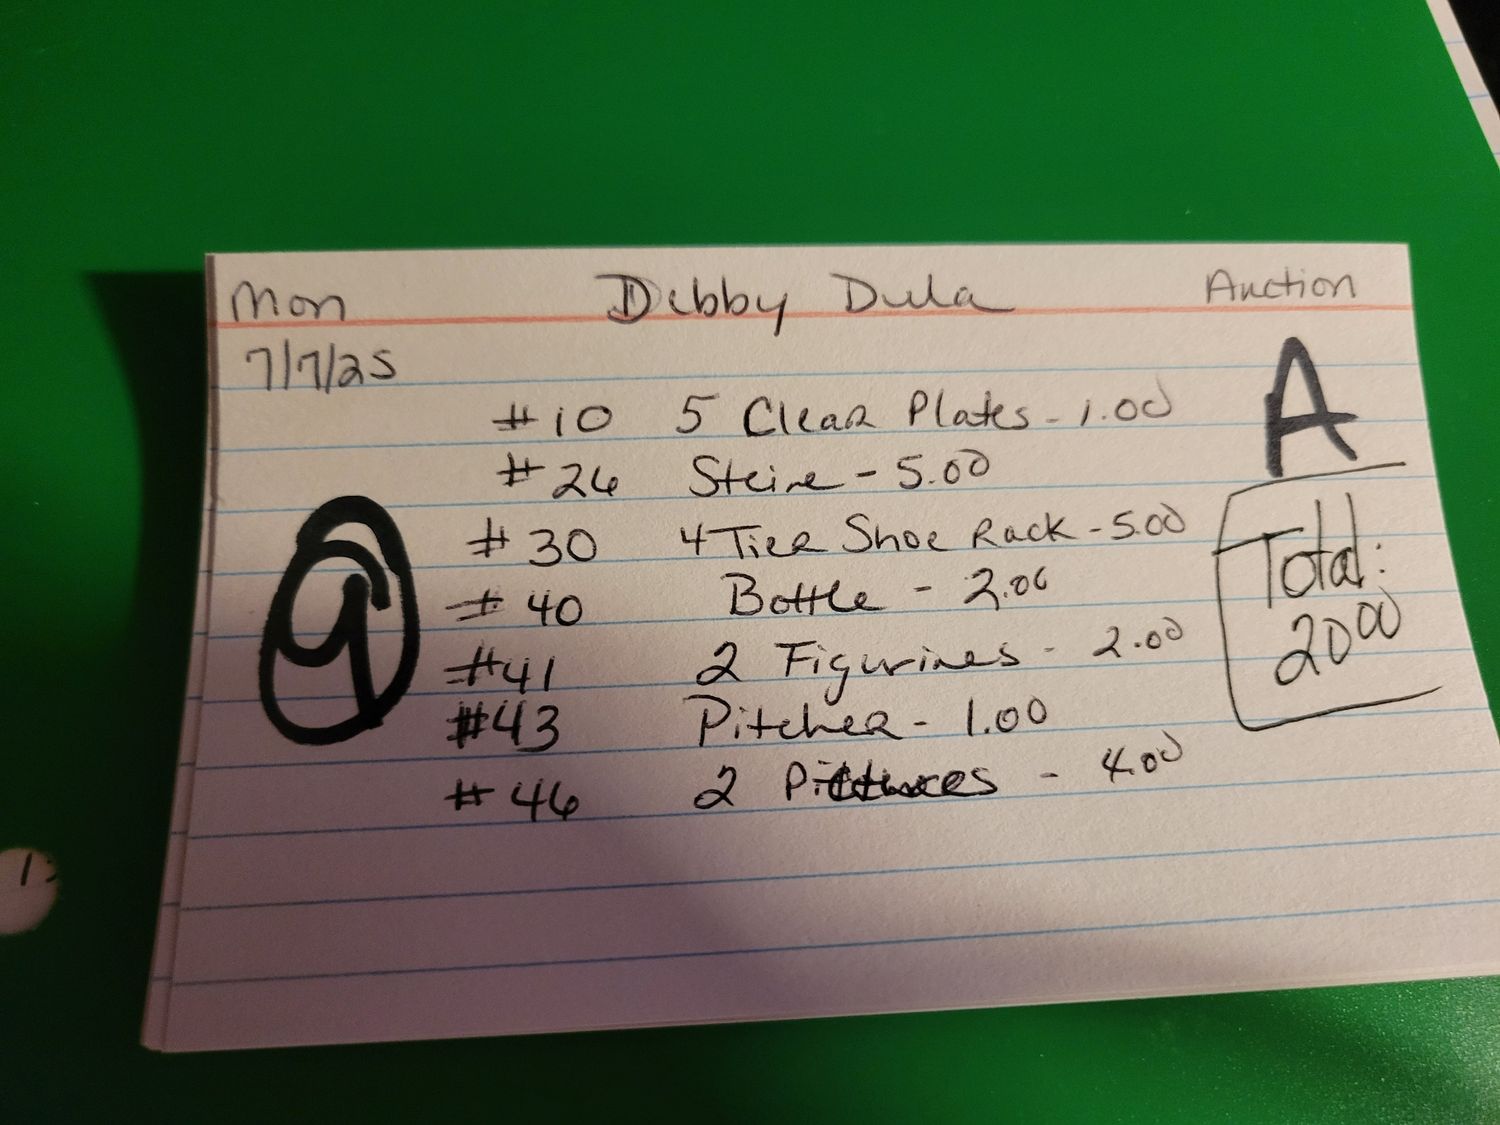 Mon Debby Dula Auction
7/7/25
A
#10 5 Clear Plates - 1.00
#26 Steine - 5.00
#30 4 Tier Shoe Rack - 5.00
#40 Bottle - 2.00
#41 2 Figurines - 2.00
#43 Pitcher - 1.00
#46 2 Pictures - 4.00
9
Total:
20.00